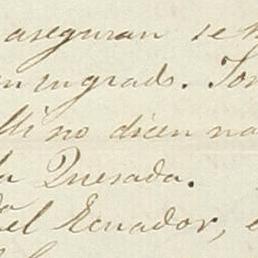 aseguran se
en ingrado. Tom
Mi no dicen na
la Quesada.
el Ecuador,